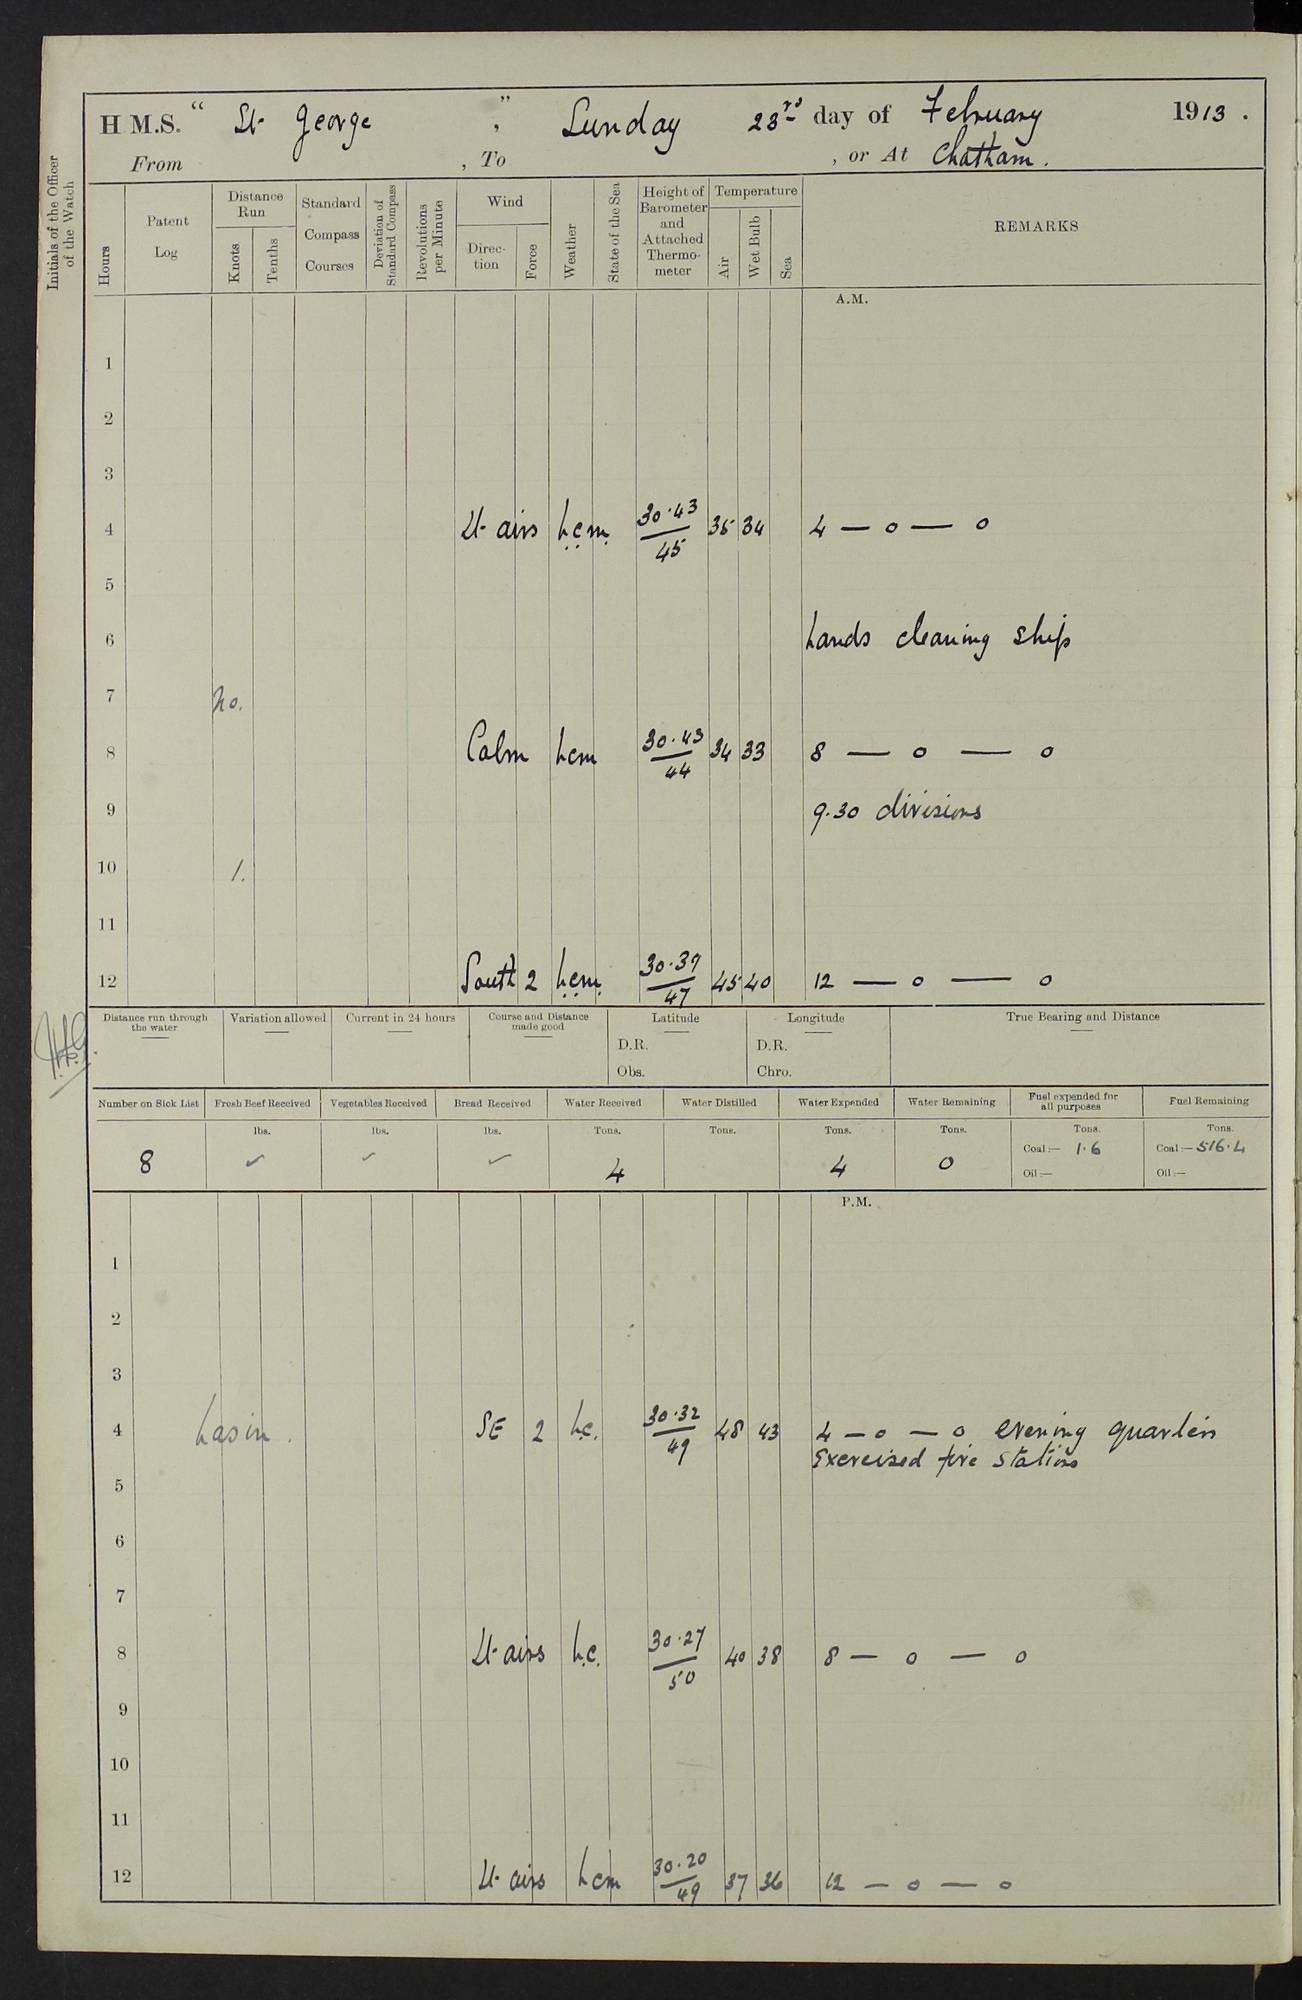 H.M.S. " St George ", Sunday 23rd day of February 1913.
From , To , or At Chatham.
Initials of the Officer of the Watch
Hours
Patent Log
Distance Run
Knots
Tenths
Standard Compass Courses
Deviation of Standard Compass
Revolutions per Minute
Wind
Direction
Force
Weather
State of the Sea
Height of Barometer and Attached Thermometer
Temperature
Air
Wet Bulb
Sea
REMARKS
A.M.
1
2
3
4 Lt airs b.c.m. 30.43/45 35 34 4 — o — o
5
6 hands cleaning ship
7 No.
8 Calm bcm 30.43/44 34 33 8 — o — o
9 9.30 divisions
10 1.
11
12 South 2 b.c.m. 30.39/47 45 40 12 — o — o
Distance run through the water
Variation allowed
Current in 24 hours
Course and Distance made good
Latitude
D.R.
Obs.
Longitude
D.R.
Chro.
True Bearing and Distance
Number on Sick List
8
Fresh Beef Received
lbs.
✓
Vegetables Received
lbs.
✓
Bread Received
lbs.
✓
Water Received
Tons.
4
Water Distilled
Tons.
Water Expended
Tons.
4
Water Remaining
Tons.
0
Fuel expended for all purposes
Tons.
Coal:— 1.6
Oil:—
Fuel Remaining
Tons.
Coal:— 516.4
Oil:—
P.M.
1
2
3
4 basin. SE 2 b.c. 30.32/49 48 43 4 — o — o evening quarters
Exercised fire stations
5
6
7
8 Lt airs b.c. 30.27/50 40 38 8 — o — o
9
10
11
12 Lt airs bcm 30.20/49 37 36 12 — o — o